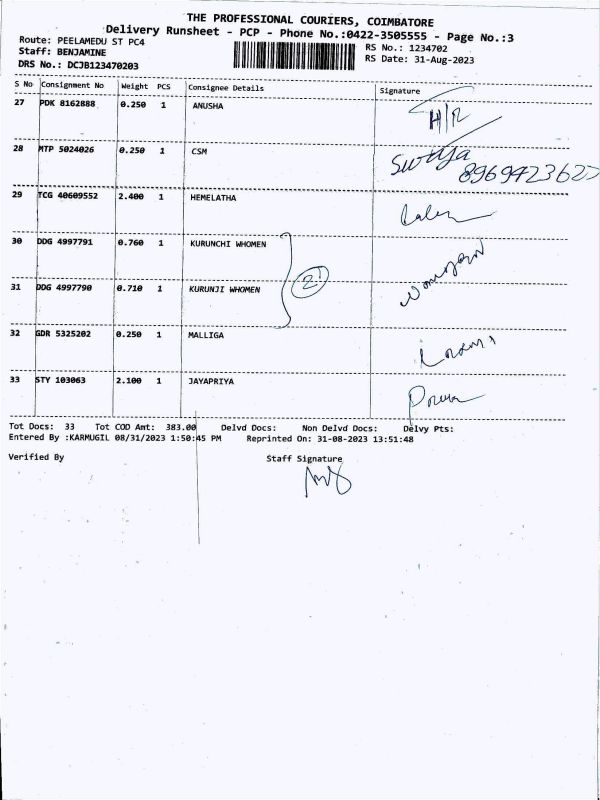 THE PROFESSIONAL COURIERS, COIMBATORE
Delivery Runsheet - PCP - Phone No.:0422-3505555 - Page No.:3
Route: PEELAMEDU ST PC4 RS No.: 1234702
Staff: BENJAMINE RS Date: 31-Aug-2023
DRS No.: DCJB123470203
S No Consignment No Weight PCS Consignee Details Signature
27 PDK 8162888 0.250 1 ANUSHA H/R
28 MTP 5024026 0.250 1 CSM Surya
8969423627
29 TCG 40609552 2.400 1 HEMELATHA
30 DDG 4997791 0.760 1 KURUNCHI WHOMEN
2
31 DDG 4997790 0.710 1 KURUNJI WHOMEN
32 GDR 5325202 0.250 1 MALLIGA
33 STY 103063 2.100 1 JAYAPRIYA
Tot Docs: 33 Tot COD Amt: 383.00 Delvd Docs: Non Delvd Docs: Delvy Pts:
Entered By :KARMUGIL 08/31/2023 1:50:45 PM Reprinted On: 31-08-2023 13:51:48
Verified By Staff Signature